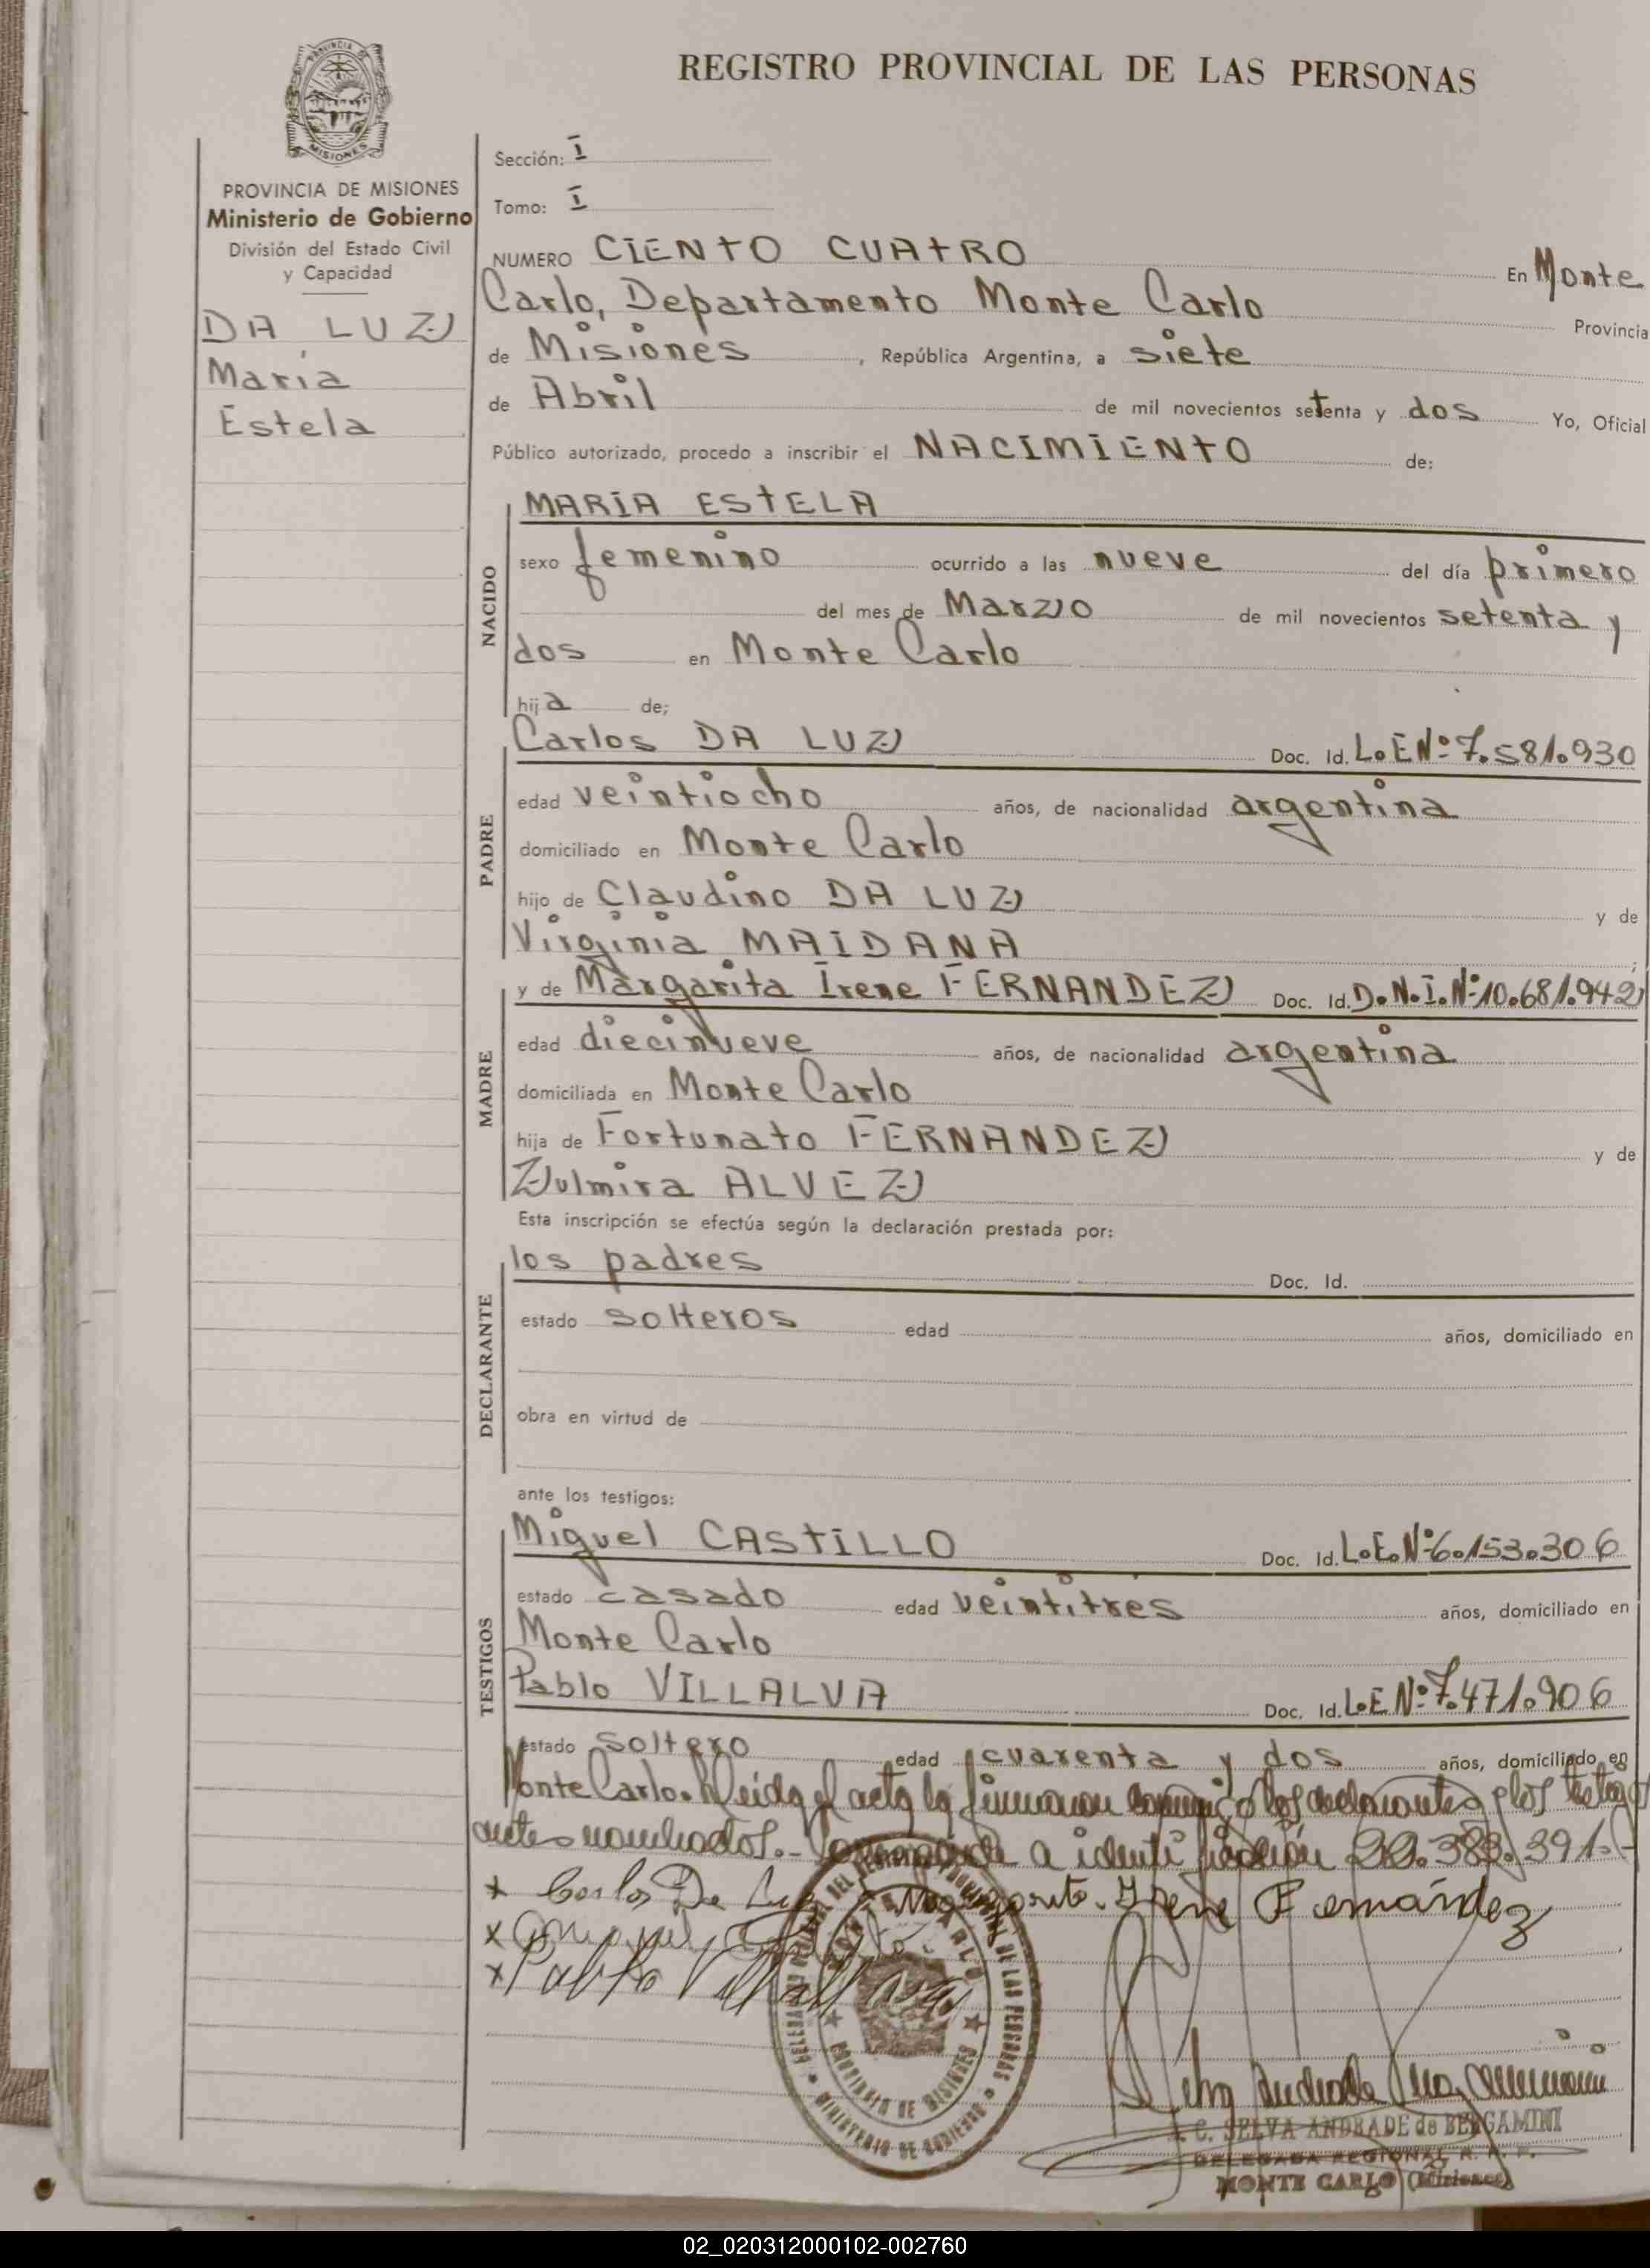 PROVINCIA DE
MISIONES
REGISTRO PROVINCIAL DE LAS PERSONAS
PROVINCIA DE MISIONES
Ministerio de Gobierno
División del Estado Civil
y Capacidad
DA LUZ
María
Estela
Sección: I
Tomo: I
NUMERO CIENTO CUATRO En Monte
Carlo, Departamento Monte Carlo Provincia
de Misiones, República Argentina, a siete
de Abril de mil novecientos setenta y dos Yo, Oficial
Público autorizado, procedo a inscribir el NACIMIENTO de:
NACIDO
MARIA ESTELA
sexo femenino ocurrido a las nueve del día primero
del mes de Marzo de mil novecientos setenta y
dos en Monte Carlo
hija de;
PADRE
Carlos DA LUZ Doc. Id. L.E Nº 7.581.930
edad veintiocho años, de nacionalidad argentina
domiciliado en Monte Carlo
hijo de Claudino DA LUZ y de
Virginia MAIDANA
MADRE
y de Margarita Irene FERNANDEZ Doc. Id. D.N.I.Nº 10.681.942;
edad diecinueve años, de nacionalidad argentina
domiciliada en Monte Carlo
hija de Fortunato FERNANDEZ y de
Zulmira ALVEZ
Esta inscripción se efectúa según la declaración prestada por:
DECLARANTE
los padres Doc. Id.
estado solteros edad años, domiciliado en
obra en virtud de
ante los testigos:
TESTIGOS
Miguel CASTILLO Doc. Id. L.E.Nº 6.153.306
estado casado edad veintitres años, domiciliado en
Monte Carlo
Pablo VILLALVA Doc. Id. L.E Nº 7.471.906
estado soltero edad cuarenta y dos años, domiciliado en
Monte Carlo. Leida el acta la firmaron conmigo los declarantes y los testigos
antes nombrados.- a identificación 22.382.391.-
x Carlos Da Luz Margarita Irene Fernández
x
x Pablo Villalva
MONTE CARLO
PROVINCIA DE MISIONES
MINISTERIO DE GOBIERNO
C. SELVA ANDRADE de BERGAMINI
DELEGADA REGIONAL R. P. P.
MONTE CARLO (Misiones)
02_020312000102-002760